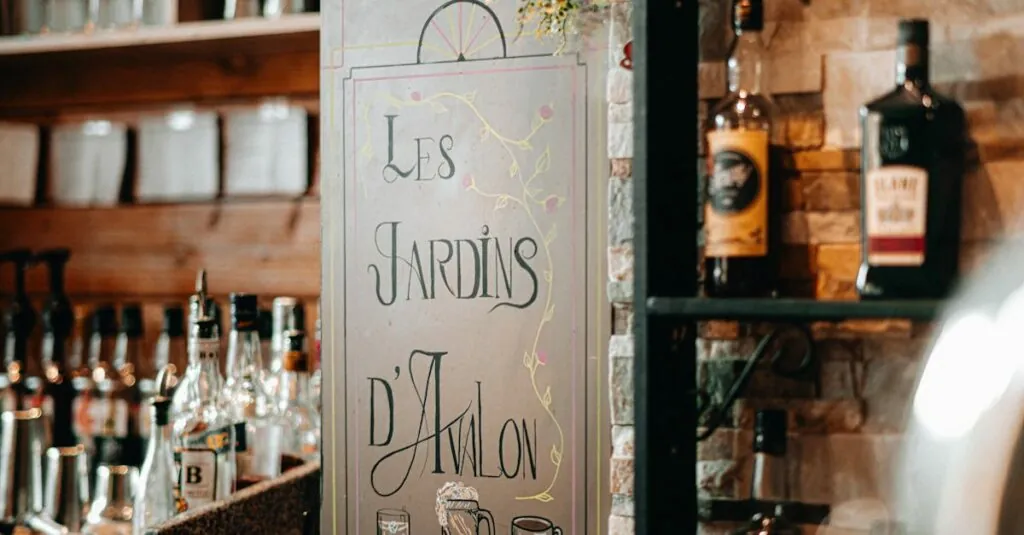 Les
Jardins
d'Avalon
B